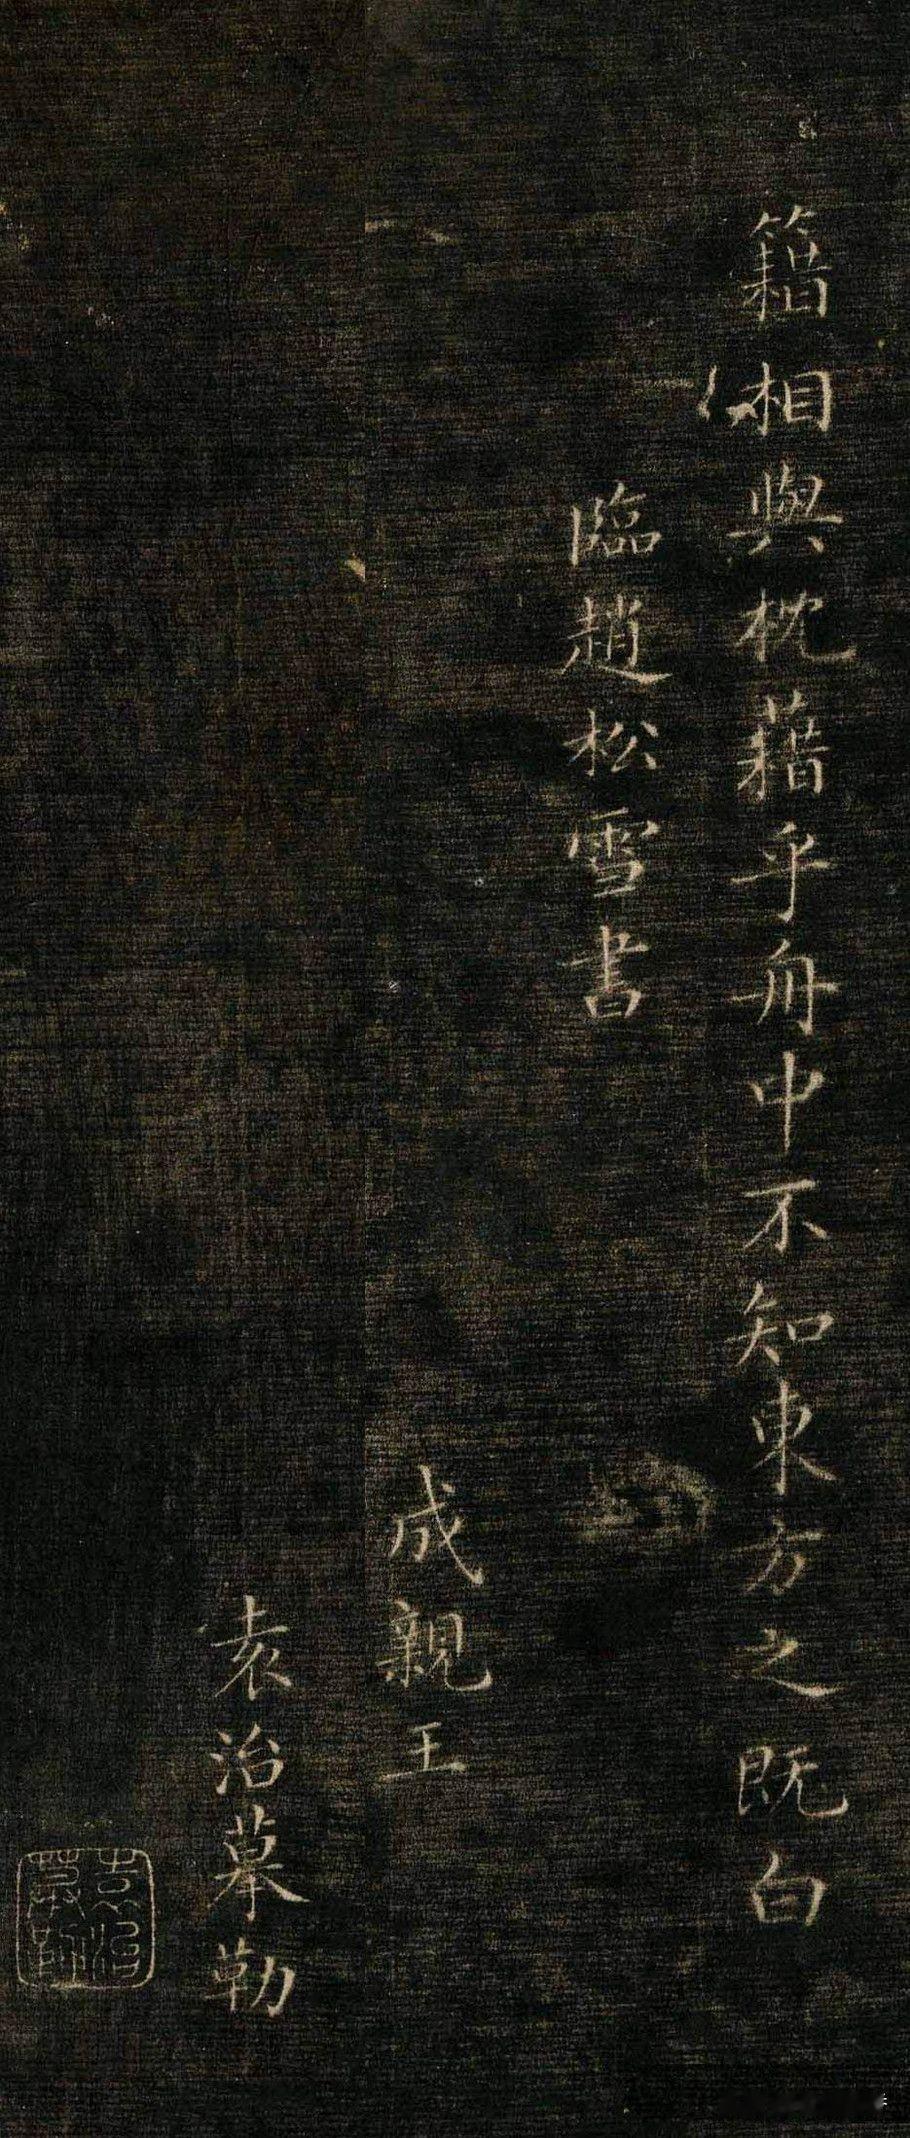 籍相與枕藉乎舟中不知東方之既白
臨趙松雪書
成親王
袁治摹勒
袁治摹勒